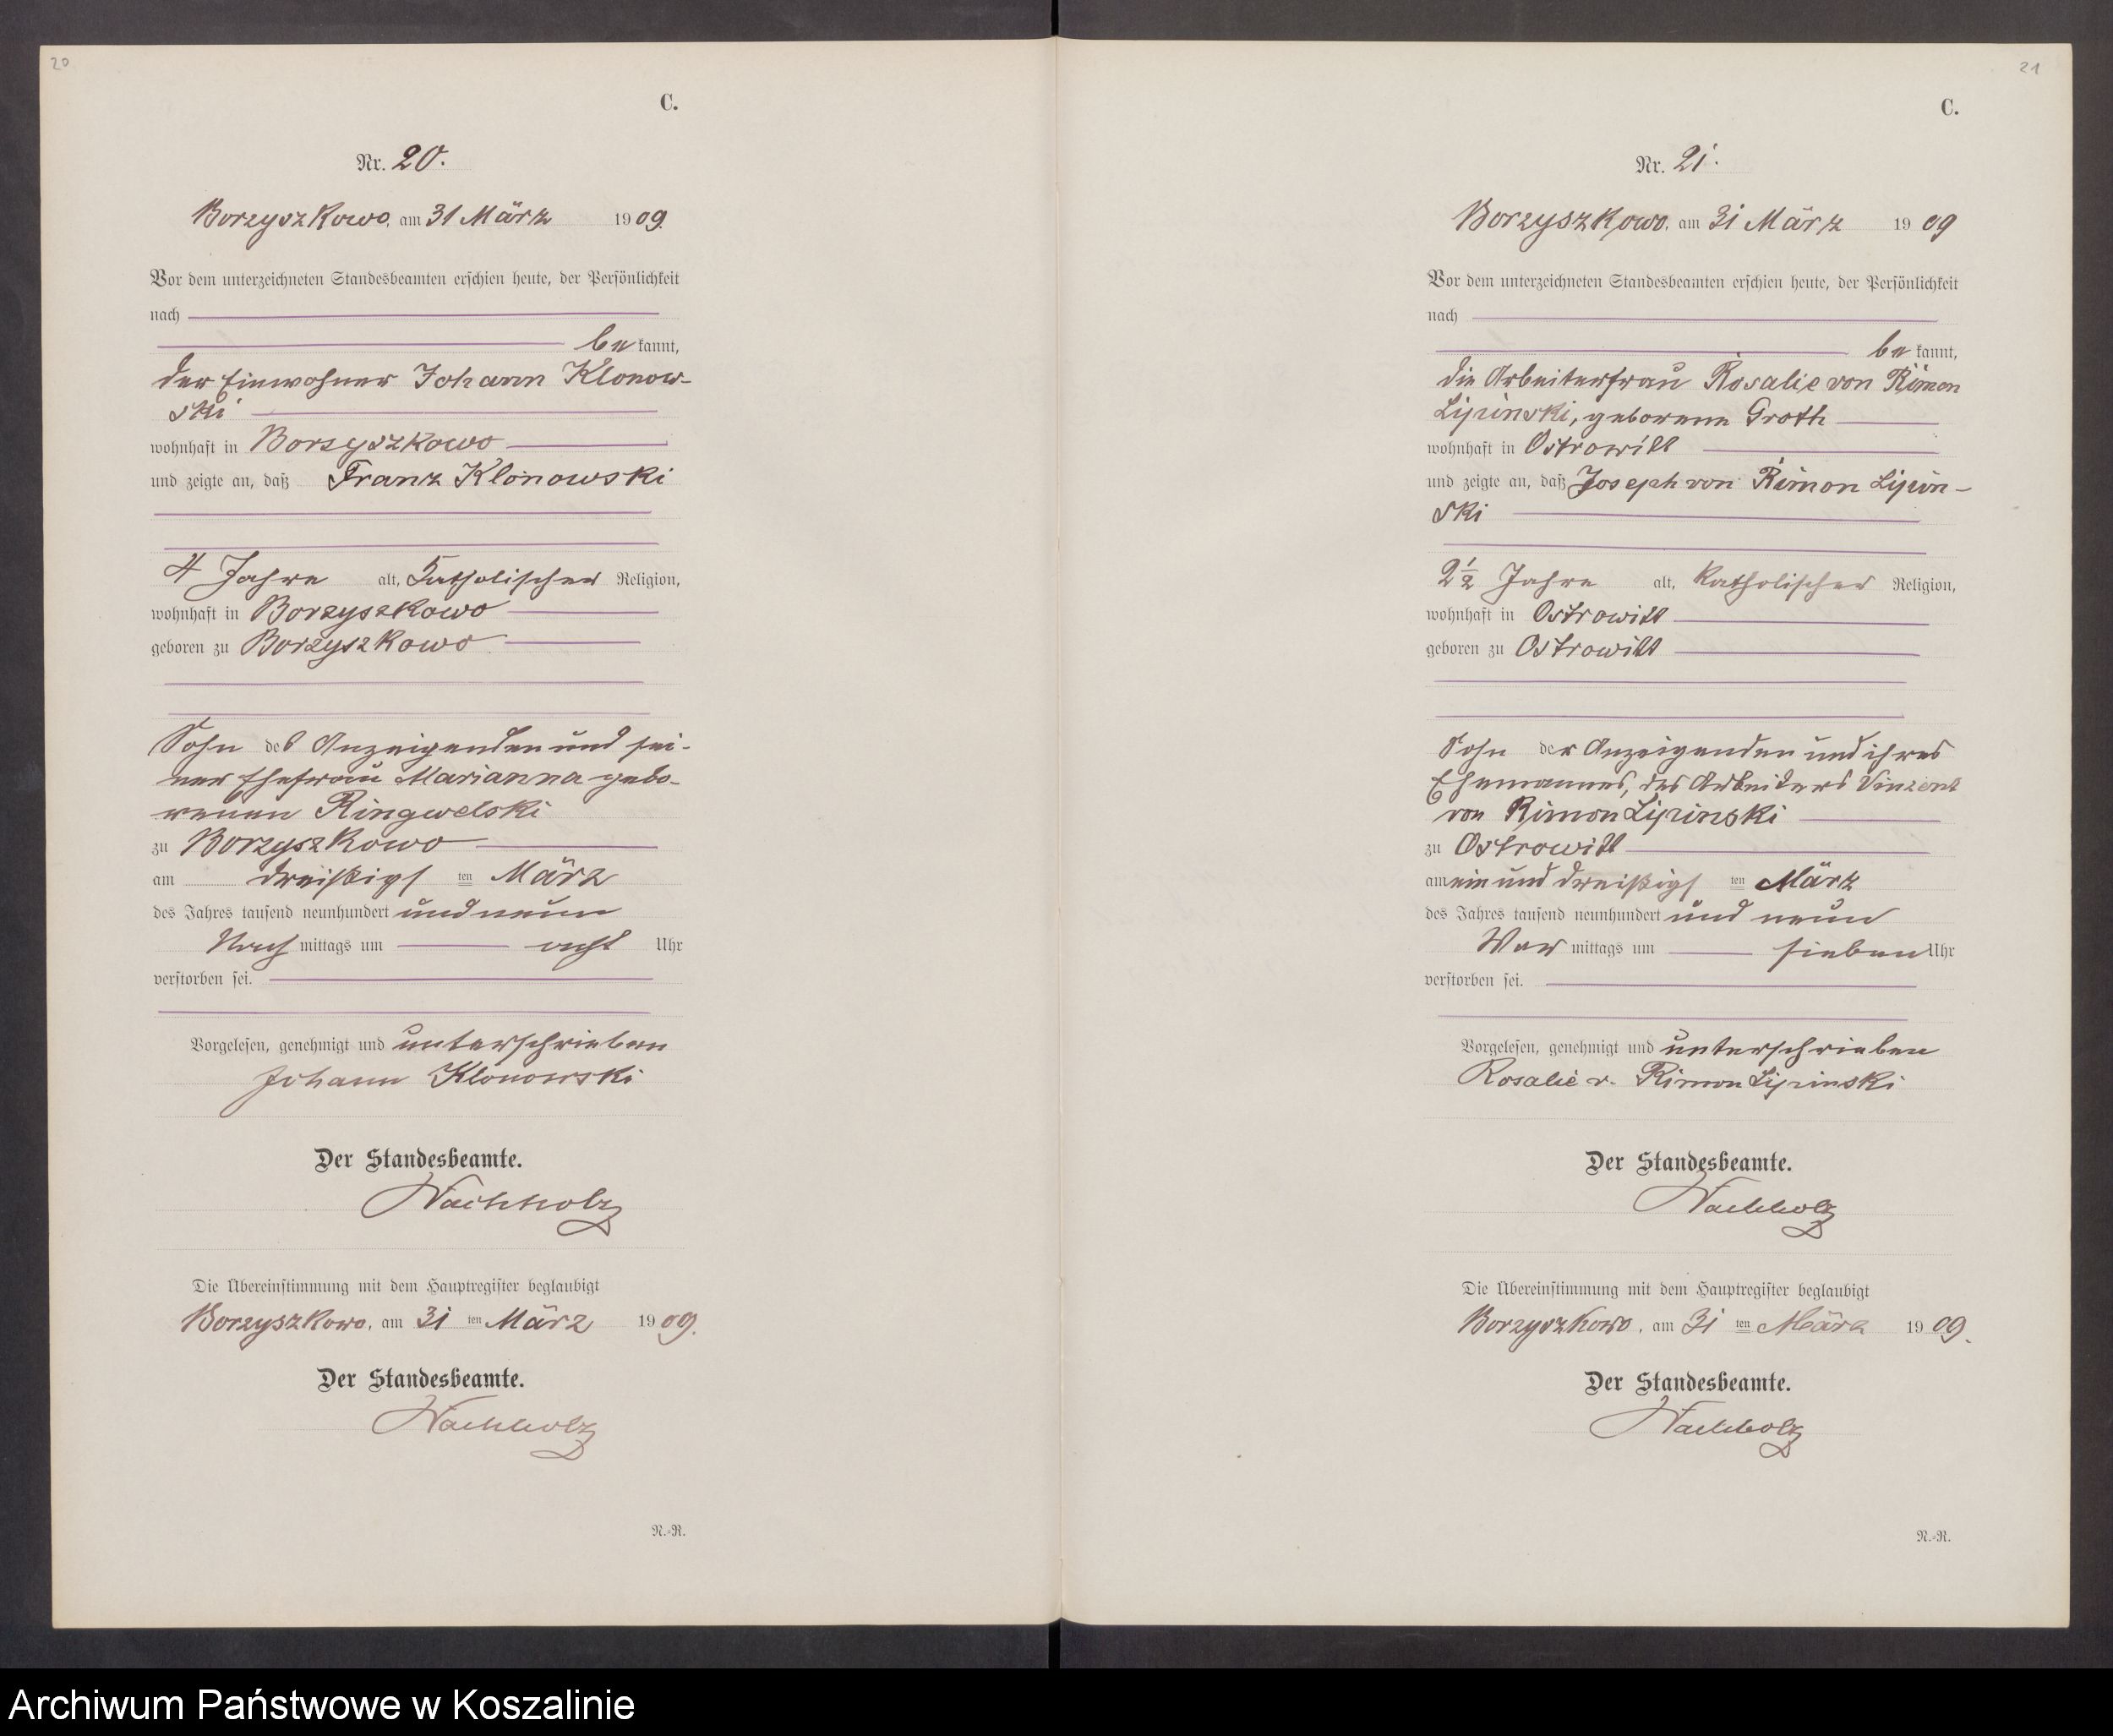 20
C.
Nr. 20.
Borzyszkowo, am 31 März 1909.
Vor dem unterzeichneten Standesbeamten erschien heute, der Persönlichkeit
nach
bekannt,
der Einwohner Johann Klonow-
ski
wohnhaft in Borzyszkowo
und zeigte an, daß Franz Klonowski
4 Jahre alt, katholischer Religion,
wohnhaft in Borzyszkowo
geboren zu Borzyszkowo
Sohn des Anzeigenden und sei-
ner Ehefrau Marianna gebo-
renen Ringwelski
zu Borzyszkowo
am dreißigsten März
des Jahres tausend neunhundert und neun
Nachmittags um acht Uhr
verstorben sei.
Vorgelesen, genehmigt und unterschrieben
Johann Klonowski
Der Standesbeamte.
Wachholz
Die Übereinstimmung mit dem Hauptregister beglaubigt
Borzyszkowo, am 31ten März 1909.
Der Standesbeamte.
Wachholz
N.-R.
21
C.
Nr. 21.
Borzyszkowo, am 31 März 1909
Vor dem unterzeichneten Standesbeamten erschien heute, der Persönlichkeit
nach
bekannt,
die Arbeiterfrau Rosalie von Rimon
Lipinski, geborene Groth
wohnhaft in Ostrowitt
und zeigte an, daß Joseph von Rimon Lipin-
ski
2½ Jahre alt, katholischer Religion,
wohnhaft in Ostrowitt
geboren zu Ostrowitt
Sohn der Anzeigenden und ihres
Ehemannes, des Arbeiters Vinzent
von Rimon Lipinski
zu Ostrowitt
am ein und dreißigsten März
des Jahres tausend neunhundert und neun
Vormittags um sieben Uhr
verstorben sei.
Vorgelesen, genehmigt und unterschrieben
Rosalie v. Rimon Lipinski
Der Standesbeamte.
Wachholz
Die Übereinstimmung mit dem Hauptregister beglaubigt
Borzyszkowo, am 31ten März 1909.
Der Standesbeamte.
Wachholz
N.-R.
Archiwum Państwowe w Koszalinie